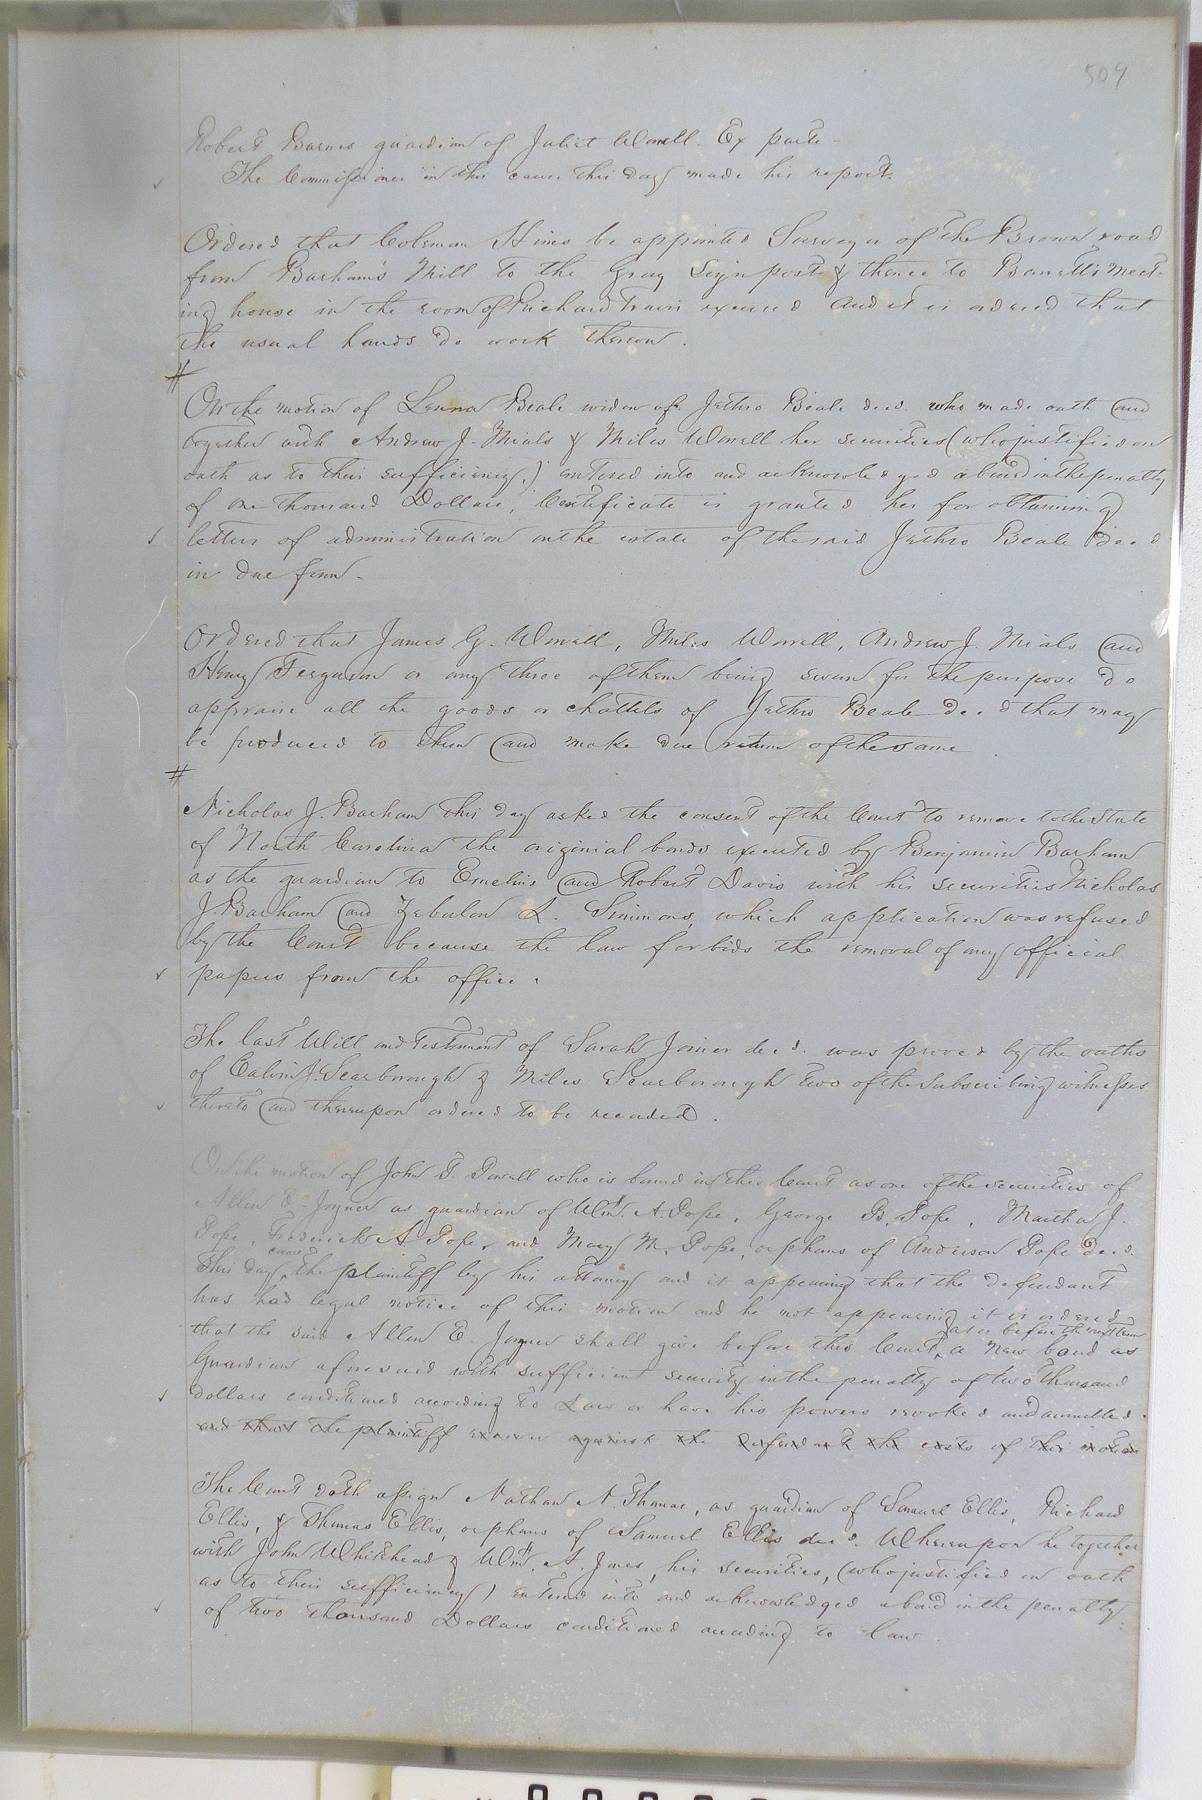 509
Robert Barnes guardian of Juliet Worrell. Ex parte -
The Commissioner in this cause this day made his report.
Ordered that Coleman Hines be appointed Surveyor of the Brown road
from Barham's Mill to the Gray Sign post & thence to Barrett's meet-
ing house in the room of Richard Travis excused and it is ordered that
the usual hands do work thereon.
#
On the motion of Leuna Beale widow of Jethro Beale decd. who made oath and
together with Andrew J. Mials & Miles Worrell her securities (who justified on
oath as to their sufficiency,) entered into and acknowledged a bond in the penalty
of one thousand Dollars, Certificate is granted her for obtaining
letters of administration on the estate of the said Jethro Beale decd
in due form.
Ordered that James G. Worrell, Miles Worrell, Andrew J. Mials and
Henry Ferguson or any three of them being sworn for the purpose do
appraise all the goods or chattels of Jethro Beale decd that may
be produced to them and make due return of the same
#
Nicholas J. Barham this day asked the consent of the Court to remove to the State
of North Carolina the originial bonds executed by Benjamin Barham
as the guardian to Emeline and Robert Davis with his securities Nicholas
J. Barham and Zebulon L. Simmons, which application was refused
by the Court because the law forbids the removal of any official
papers from the office.
The last Will and testament of Sarah Joiner decd. was proved by the oaths
of Calvin J. Scarborough & Miles Scarborough two of the subscribing witnesses
thereto and thereupon ordered to be recorded.
On the motion of John T. Powell who is bound in this Court as one of the securities of
Allen E. Joyner as guardian of Wm. A. Pope, George B. Pope, Martha J.
Pope, Frederick A Pope, and Mary M. Pope, orphans of Anderson Pope decd.
This day came the plaintiff by his attorney and it appearing that the defendant
has had legal notice of this motion and he not appearing it is ordered
that the said Allen E. Joyner shall give before this Court, at or before the next term a new bond as
Guardian aforesaid with sufficient security in the penalty of two thousand
dollars conditioned according to Law or have his powers revoked and annulled.
and that the plaintiff recover against the defendant the costs of this motion
The Court doth assign Nathan N Thomas, as guardian of Samuel Ellis, Richard
Ellis, & Thomas Ellis, orphans of Samuel Ellis decd. Whereupon he together
with John Whitehead & Wm. A. Jones, his securities, (who justified on oath
as to their sufficiency) entered into and acknowledged a bond in the penalty
of two thousand Dollars conditioned according to law.